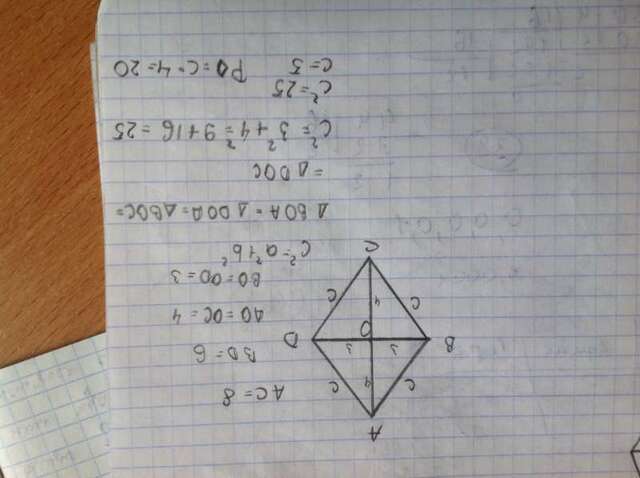 A
C C
4
AC = 8
B 3 3 D
O
BD = 6
C 4 C
AO = OC = 4
C
BO = OD = 3
c² = a² + b²
Δ BOA = Δ DOA = Δ BOC =
= Δ DOC
c² = 3² + 4² = 9 + 16 = 25
c² = 25
c = 5 P◊ = c · 4 = 20